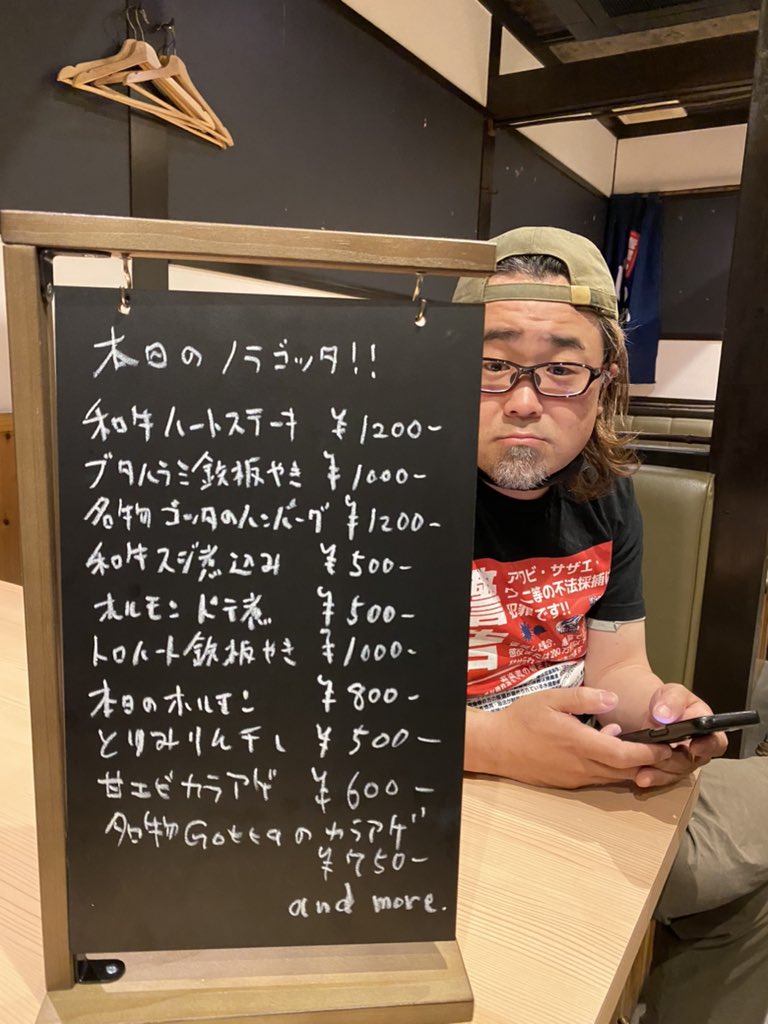 本日のノラゴッタ!!
和牛ハートステーキ ¥1200-
ブタハラミ鉄板やき ¥1000-
名物ゴッタのハンバーグ ¥1200-
和牛スジ煮込み ¥500-
ホルモンドテ煮 ¥500-
トロハート鉄板やき ¥1000-
本日のホルモン ¥800-
とりみりん干し ¥500-
甘エビカラアゲ ¥600-
名物Gottaのカラアゲ
¥750-
and more.
警告
アワビ・サザエ
等の不法採捕
犯罪です!!